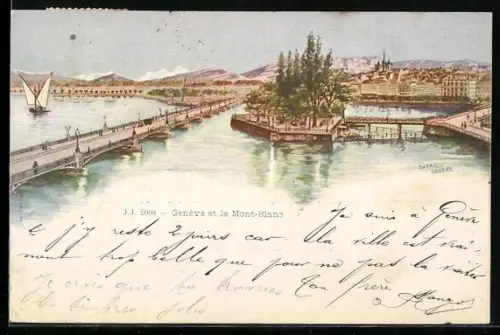 J.J. 5008 – Genève et le Mont-Blanc
Je suis à Genève
et j'y reste 2 jours car la ville est vrai-
ment trop belle que pour ne pas la visiter
Je crois que tu
Ton frère
les timbres jolis